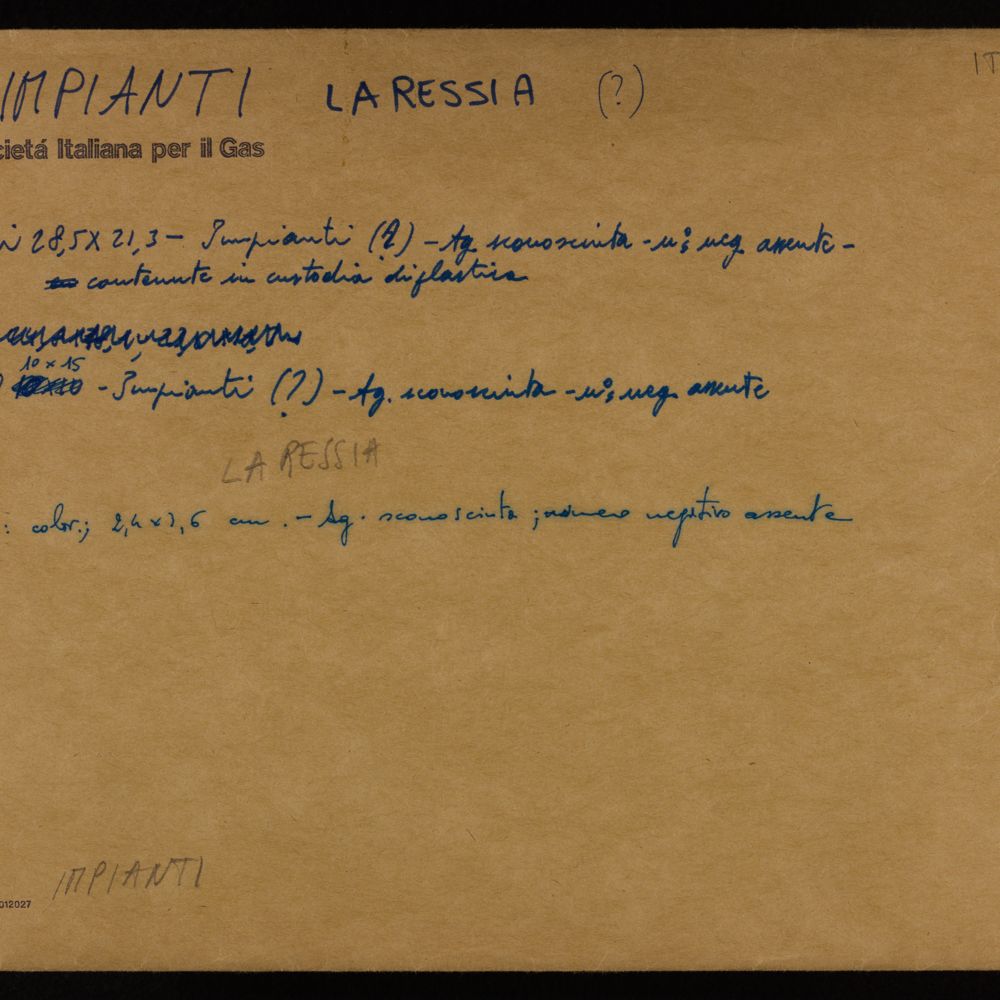 IMPIANTI LA RESSIA (?)
IT
cietá Italiana per il Gas
i 28,5 X 21,3 - Impianti (?) - Ag. sconosciuta - n°; neg. assente -
contenute in custodia di plastica
10 x 15
) - Impianti (?) - Ag. sconosciuta - n°; neg. assente
LA RESSIA
: color.; 2,4 x 3,6 cm. - Ag. sconosciuta ; numero negativo assente
IMPIANTI
012027